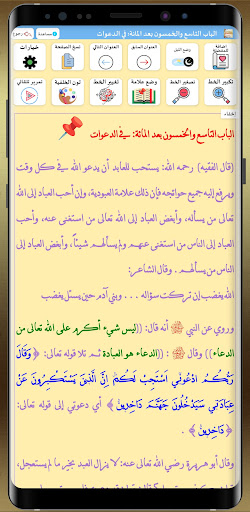 الباب التاسع والخمسون بعد المائة: في الدعوات
مساعدة
رجوع
خيارات
نسخ الصفحة
العنوان التالي
العنوان السابق
وضع الليل
اضافة
للمفضلة
تمرير تلقائي
لون الخلفية
نوع الخط
وضع علامة
تصغير الخط
تكبير الخط
إخفاء
الباب التاسع والخمسون بعد المائة: في الدعوات
(قال الفقيه) رحمه الله: يستحب للعابد أن يدعو الله في كل وقت
ويرفع إليه جميع حوائجه فإن ذلك علامة العبودية، وإن أحب العباد إلى الله
تعالى من يسأله، وأبغض العباد إلى الله تعالى من استغنى عنه، وأحب
العباد إلى الناس من استغنى عنهم ولم يسألهم شيئاً، وأبغض العباد إلى
الناس من يسألهم. وقال الشاعر:
الله يغضب إن تركت سؤاله ... وبني آدم حين يسئل يغضب
وروي عن النبي ﷺ أنه قال: ((ليس شيء أكرم على الله تعالى من
الدعاء)) وقال ﷺ: ((الدعاء هو العبادة ثم تلا قوله تعالى: ﴿وَقَالَ
رَبُّكُمُ ادْعُونِي أَسْتَجِبْ لَكُمْ إِنَّ الَّذِينَ يَسْتَكْبِرُونَ عَنْ
عِبَادَتِي سَيَدْخُلُونَ جَهَنَّمَ دَاخِرِينَ﴾ أي دعوتي إلى قوله تعالى:
﴿دَاخِرِينَ﴾.
وقال أبو هريرة رضي الله تعالى عنه: لا يزال العبد بخير ما لم يستعجل،